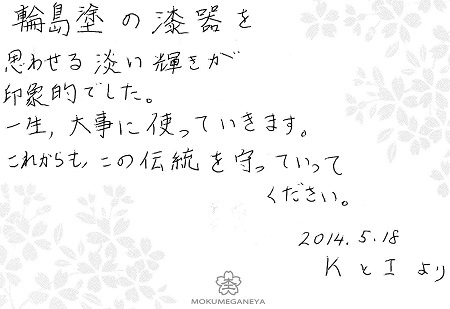 輪島塗の漆器を
思わせる淡い輝きが
印象的でした。
一生,大事に使っていきます。
これからも,この伝統を守っていって
ください。
2014.5.18
KとIより
MOKUMEGANEYA